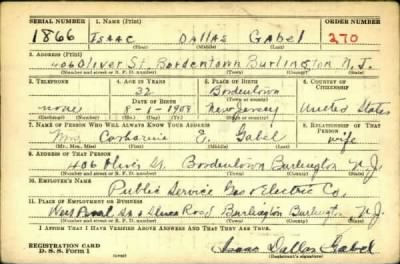 SERIAL NUMBER 1. NAME (Print) ORDER NUMBER
1866 ISAAC DALLAS Gabel 270
(First) (Middle) (Last)
2. ADDRESS (Print)
406 Oliver St. Bordentown Burlington N.J.
(Number and street or R. F. D. number) (Town) (County) (State)
3. TELEPHONE 4. AGE IN YEARS 5. PLACE OF BIRTH 6. COUNTRY OF CITIZENSHIP
32 Bordentown
DATE OF BIRTH (Town or county)
none 8-1-1908 New Jersey United States
(Exchange) (No.) (Mo.) (Day) (Yr.) (State or country)
7. NAME OF PERSON WHO WILL ALWAYS KNOW YOUR ADDRESS 8. RELATIONSHIP OF THAT PERSON
Mrs. E. Gabel wife
(Mr., Mrs., Miss) (First) (Middle) (Last)
9. ADDRESS OF THAT PERSON
406 Oliver St. Bordentown Burlington N.J.
(Number and street or R. F. D. number) (Town) (County) (State)
10. EMPLOYER'S NAME
Public Service Gas & Electric Co.
11. PLACE OF EMPLOYMENT OR BUSINESS
Road Burlington Burlington N.J.
(Number and street or R. F. D. number) (Town) (County) (State)
I AFFIRM THAT I HAVE VERIFIED ABOVE ANSWERS AND THAT THEY ARE TRUE.
REGISTRATION CARD
D. S. S. Form 1 Isaac Dallas Gabel
(over) (Registrant's signature)